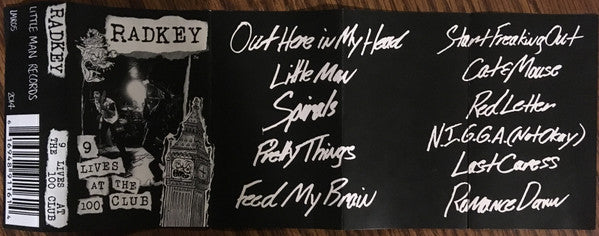 LITTLE MAN RECORDS
2014
RADKEY
9 LIVES AT
THE
100 CLUB
RADKEY
9
LIVES
AT THE
100 CLUB
Out Here in My Head
Little Man
Spirals
Pretty Things
Feed My Brain
Start Freaking Out
Cat & Mouse
Red Letter
N.I.G.G.A. (Not Okay)
Last Caress
Romance Dawn